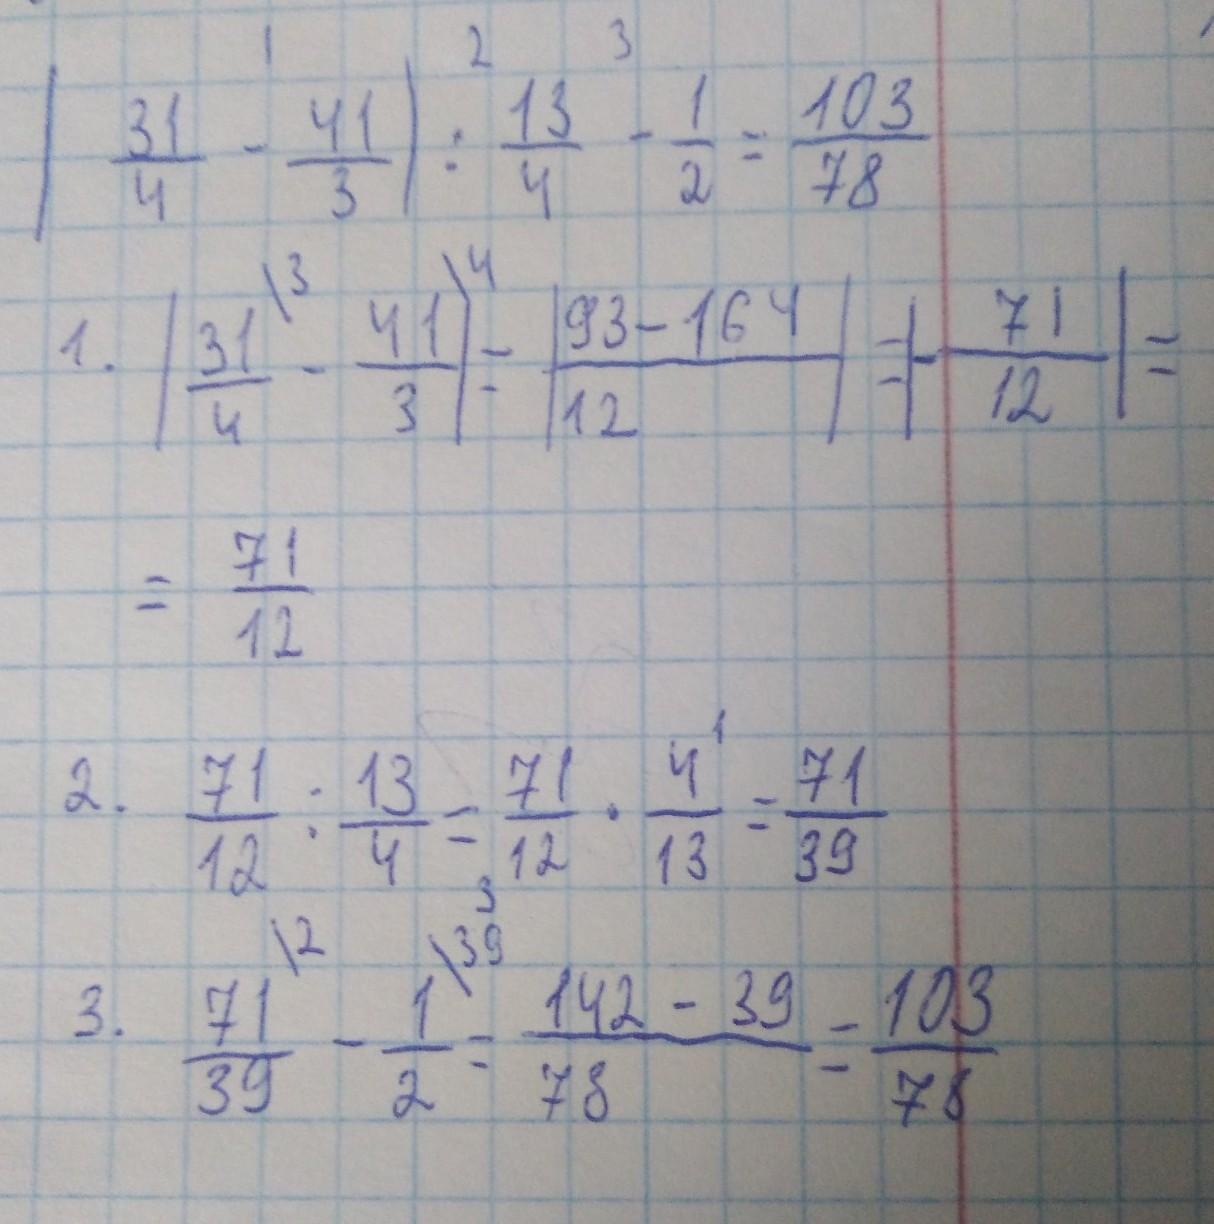 1 2 3
| 31/4 - 41/3 | : 13/4 - 1/2 = 103/78
1. | 31/4 \3 - 41/3 | \4 = | 93 - 164 / 12 | = | - 71/12 | =
= 71/12
2. 71/12 : 13/4 = 71/12 3 · 4/13 1 = 71/39
3. 71/39 \2 - 1/2 \39 = 142 - 39 / 78 = 103/78